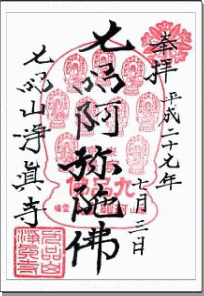 奉拝
平成二十九年
七月二日
九品阿弥陀佛
九品山淨眞寺
九品山
淨眞寺